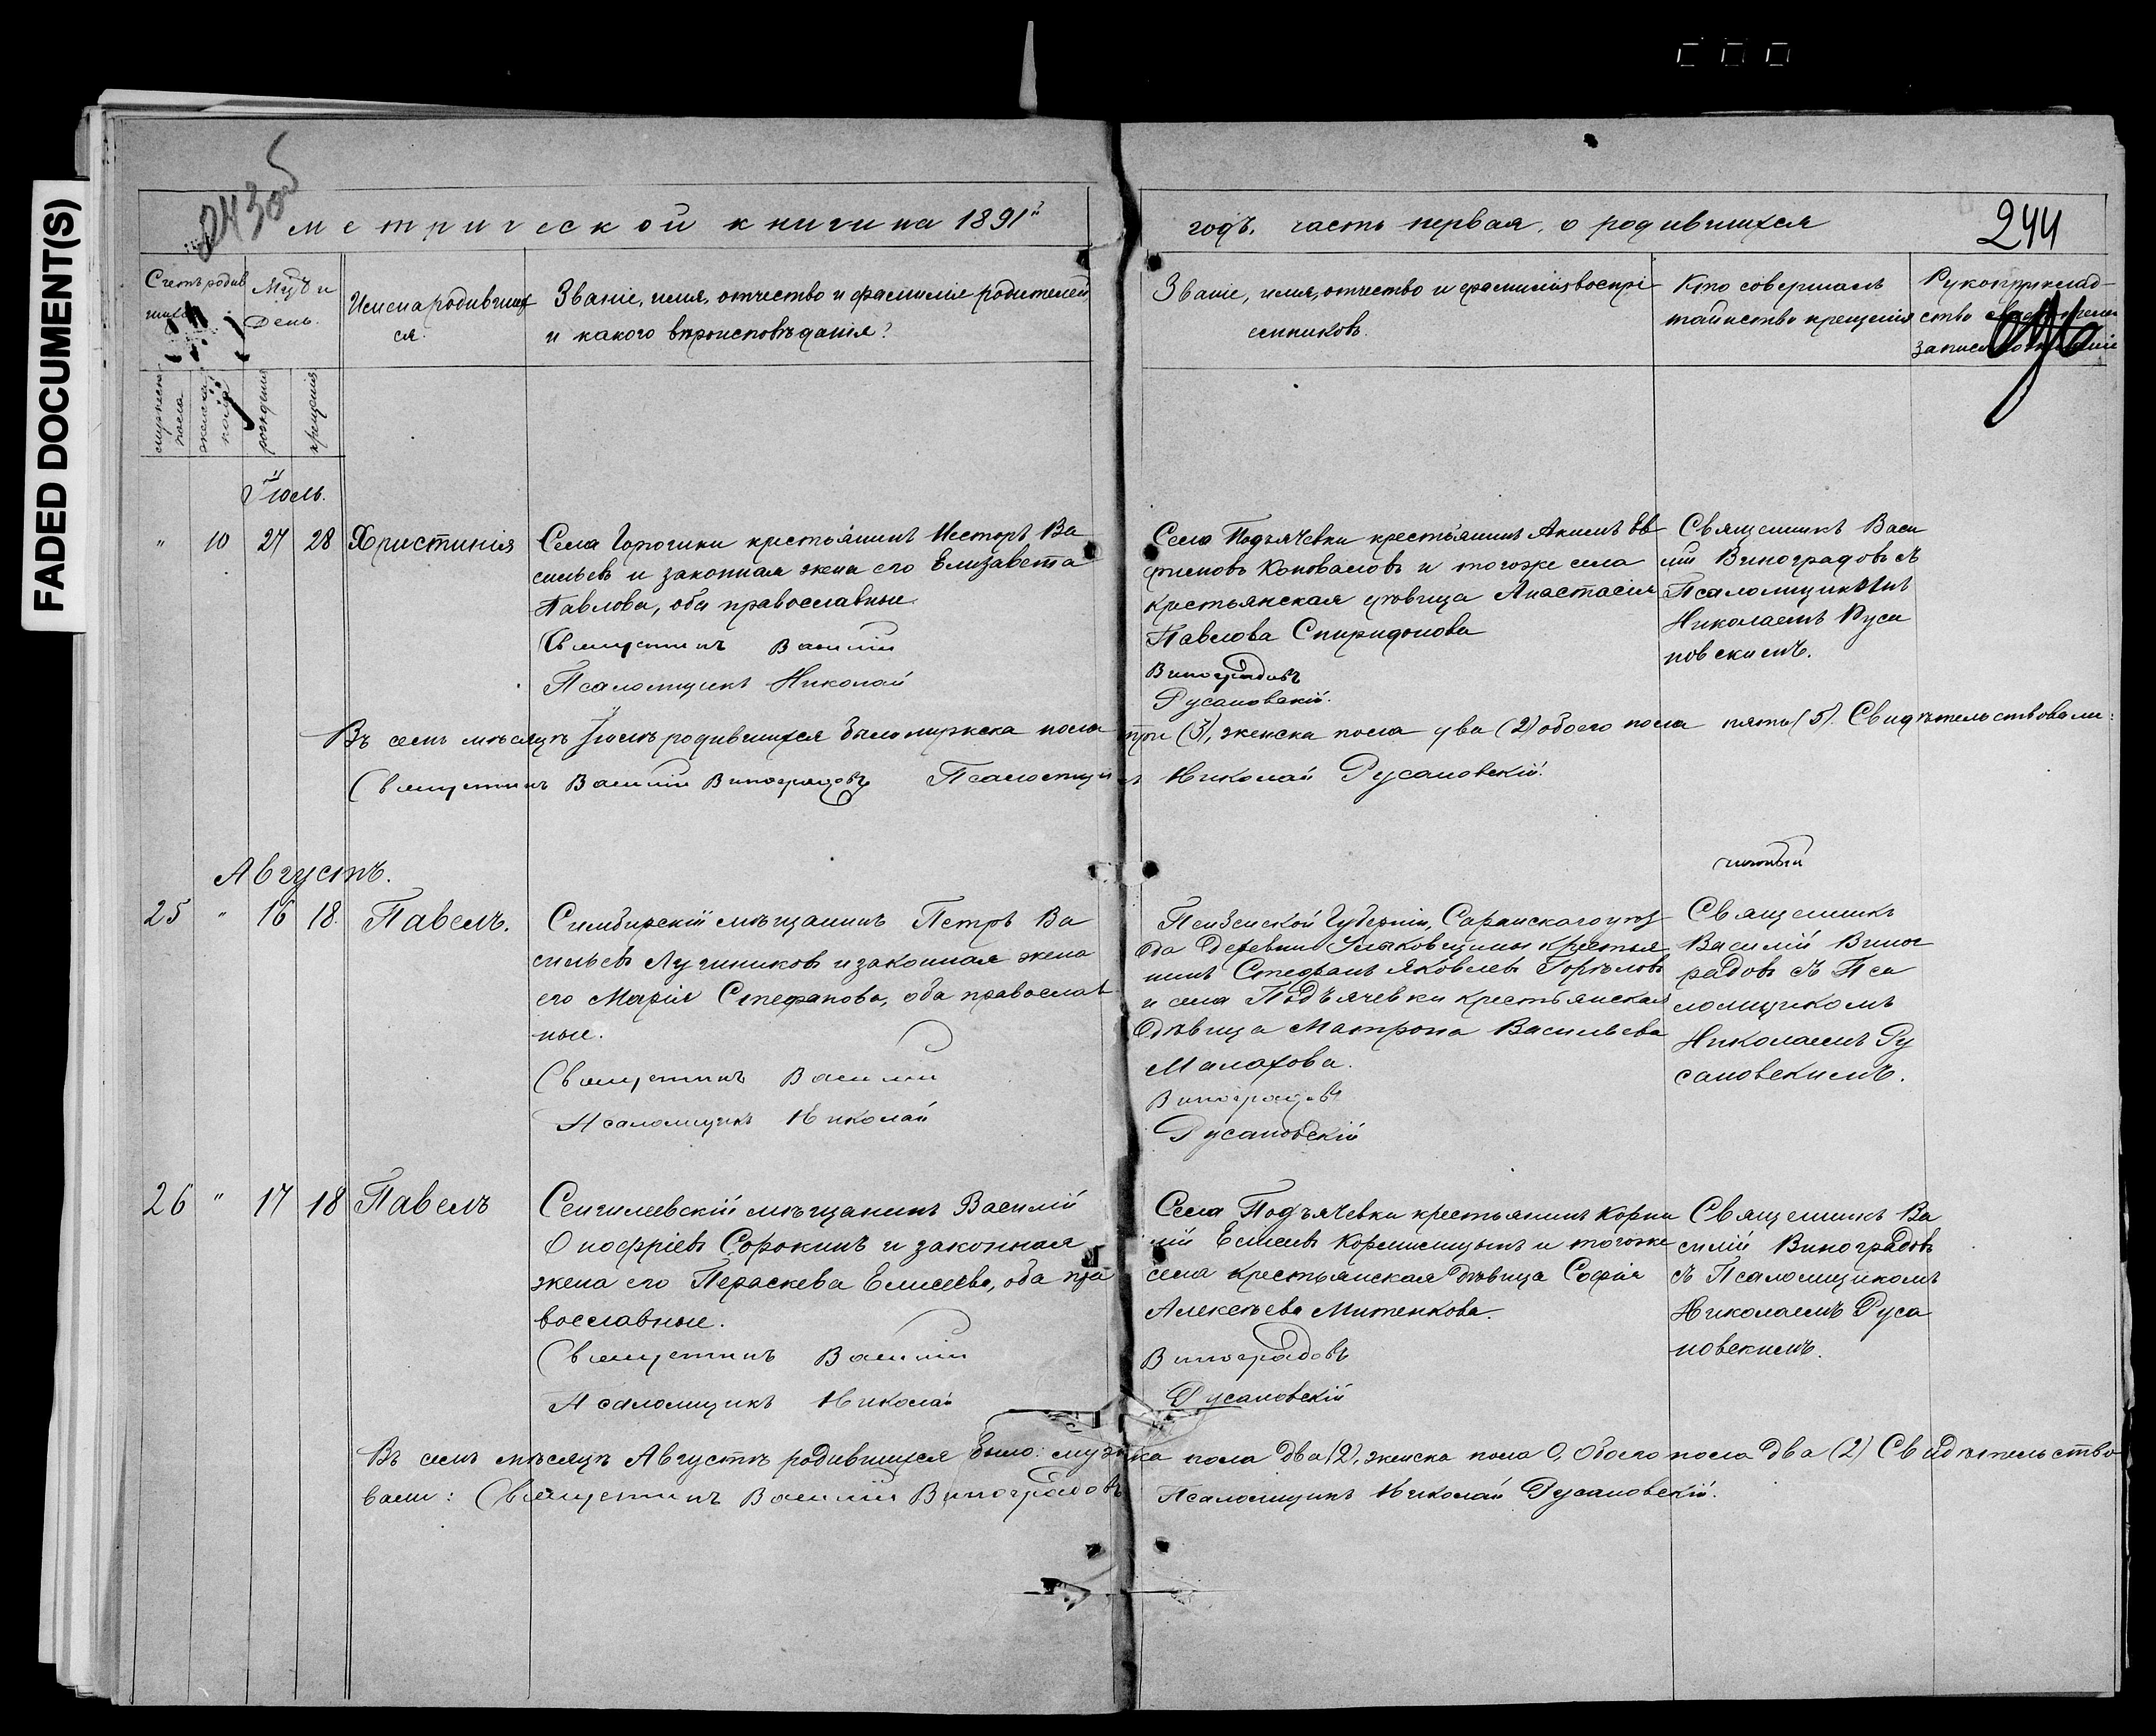 FADED DOCUMENT(S)
243 об
метрической книги на 1891й
годъ. часть первая, о родившихся
244
Счетъ родив
Мѣс. и
День.
Имена родивших
ся.
Званіе, имя, отчество и фамилія родителей
и какого вѣроисповѣданія?
Званіе, имя, отчество и фамилія воспрі
емниковъ.
Кто совершалъ
таинство крещенія
Рукоприклад-
ство
мужеска
пола
женска
пола
рожденія
крещенія
Іюль.
" 10 27 28 Христинія
Села Горюшки крестьянинъ Несторъ Ва
сильевъ и законная жена его Елизавета
Павлова, оба православные.
Священникъ Василій
Псаломщикъ Николай
Села Подъячевки крестьянинъ Акимъ Ев
фимовъ Коноваловъ и тогоже села
крестьянская дѣвица Анастасія
Павлова Спиридонова
Виноградовъ
Русановскій.
Священникъ Васи
лій Виноградовъ съ
Псаломщикомъ
Николаемъ Руса
новскимъ.
Въ семъ мѣсяцѣ Іюлѣ родившихся было мужеска пола три (3), женска пола два (2) обоего пола пять (5). Свидѣтельствовали:
Священникъ Василій Виноградовъ Псаломщикъ Николай Русановскій.
Августъ.
25 " 16 18. Павелъ.
Симбирскій мѣщанинъ Петръ Ва
сильевъ Лучниковъ и законная жена
его Марія Стефанова, оба православ
ные.
Священникъ Василій
Псаломщикъ Николай
Пензенской Губерніи, Саранскаго уѣз
да Деревни крестья
нинъ Стефанъ Яковлевъ Горѣловъ
и села Подъячевки крестьянская
дѣвица Матрона Васильева
Малахова.
Виноградовъ
Русановскій
Священникъ
Василій Виног
радовъ съ Пса
ломщикомъ
Николаемъ Ру
сановскимъ.
26 " 17 18 Павелъ
Сенгилеевскій мѣщанинъ Василій
Онофріевъ Сорокинъ и законная
жена его Параскева Елисеева, оба пра
вославные.
Священникъ Василій
Псаломщикъ Николай
Села Подъячевки крестьянинъ Корни
лій Елисеевъ Кормилицынъ и тогоже
села крестьянская дѣвица Софія
Алексѣева Митенкова.
Виноградовъ
Русановскій
Священникъ Ва
силій Виноградовъ
съ Псаломщикомъ
Николаемъ Руса
новскимъ.
Въ семъ мѣсяцѣ Августѣ родившихся было: мужеска пола два (2), женска пола 0, обоего пола два (2) Свидѣтельство
вали: Священникъ Василій Виноградовъ Псаломщикъ Николай Русановскій.